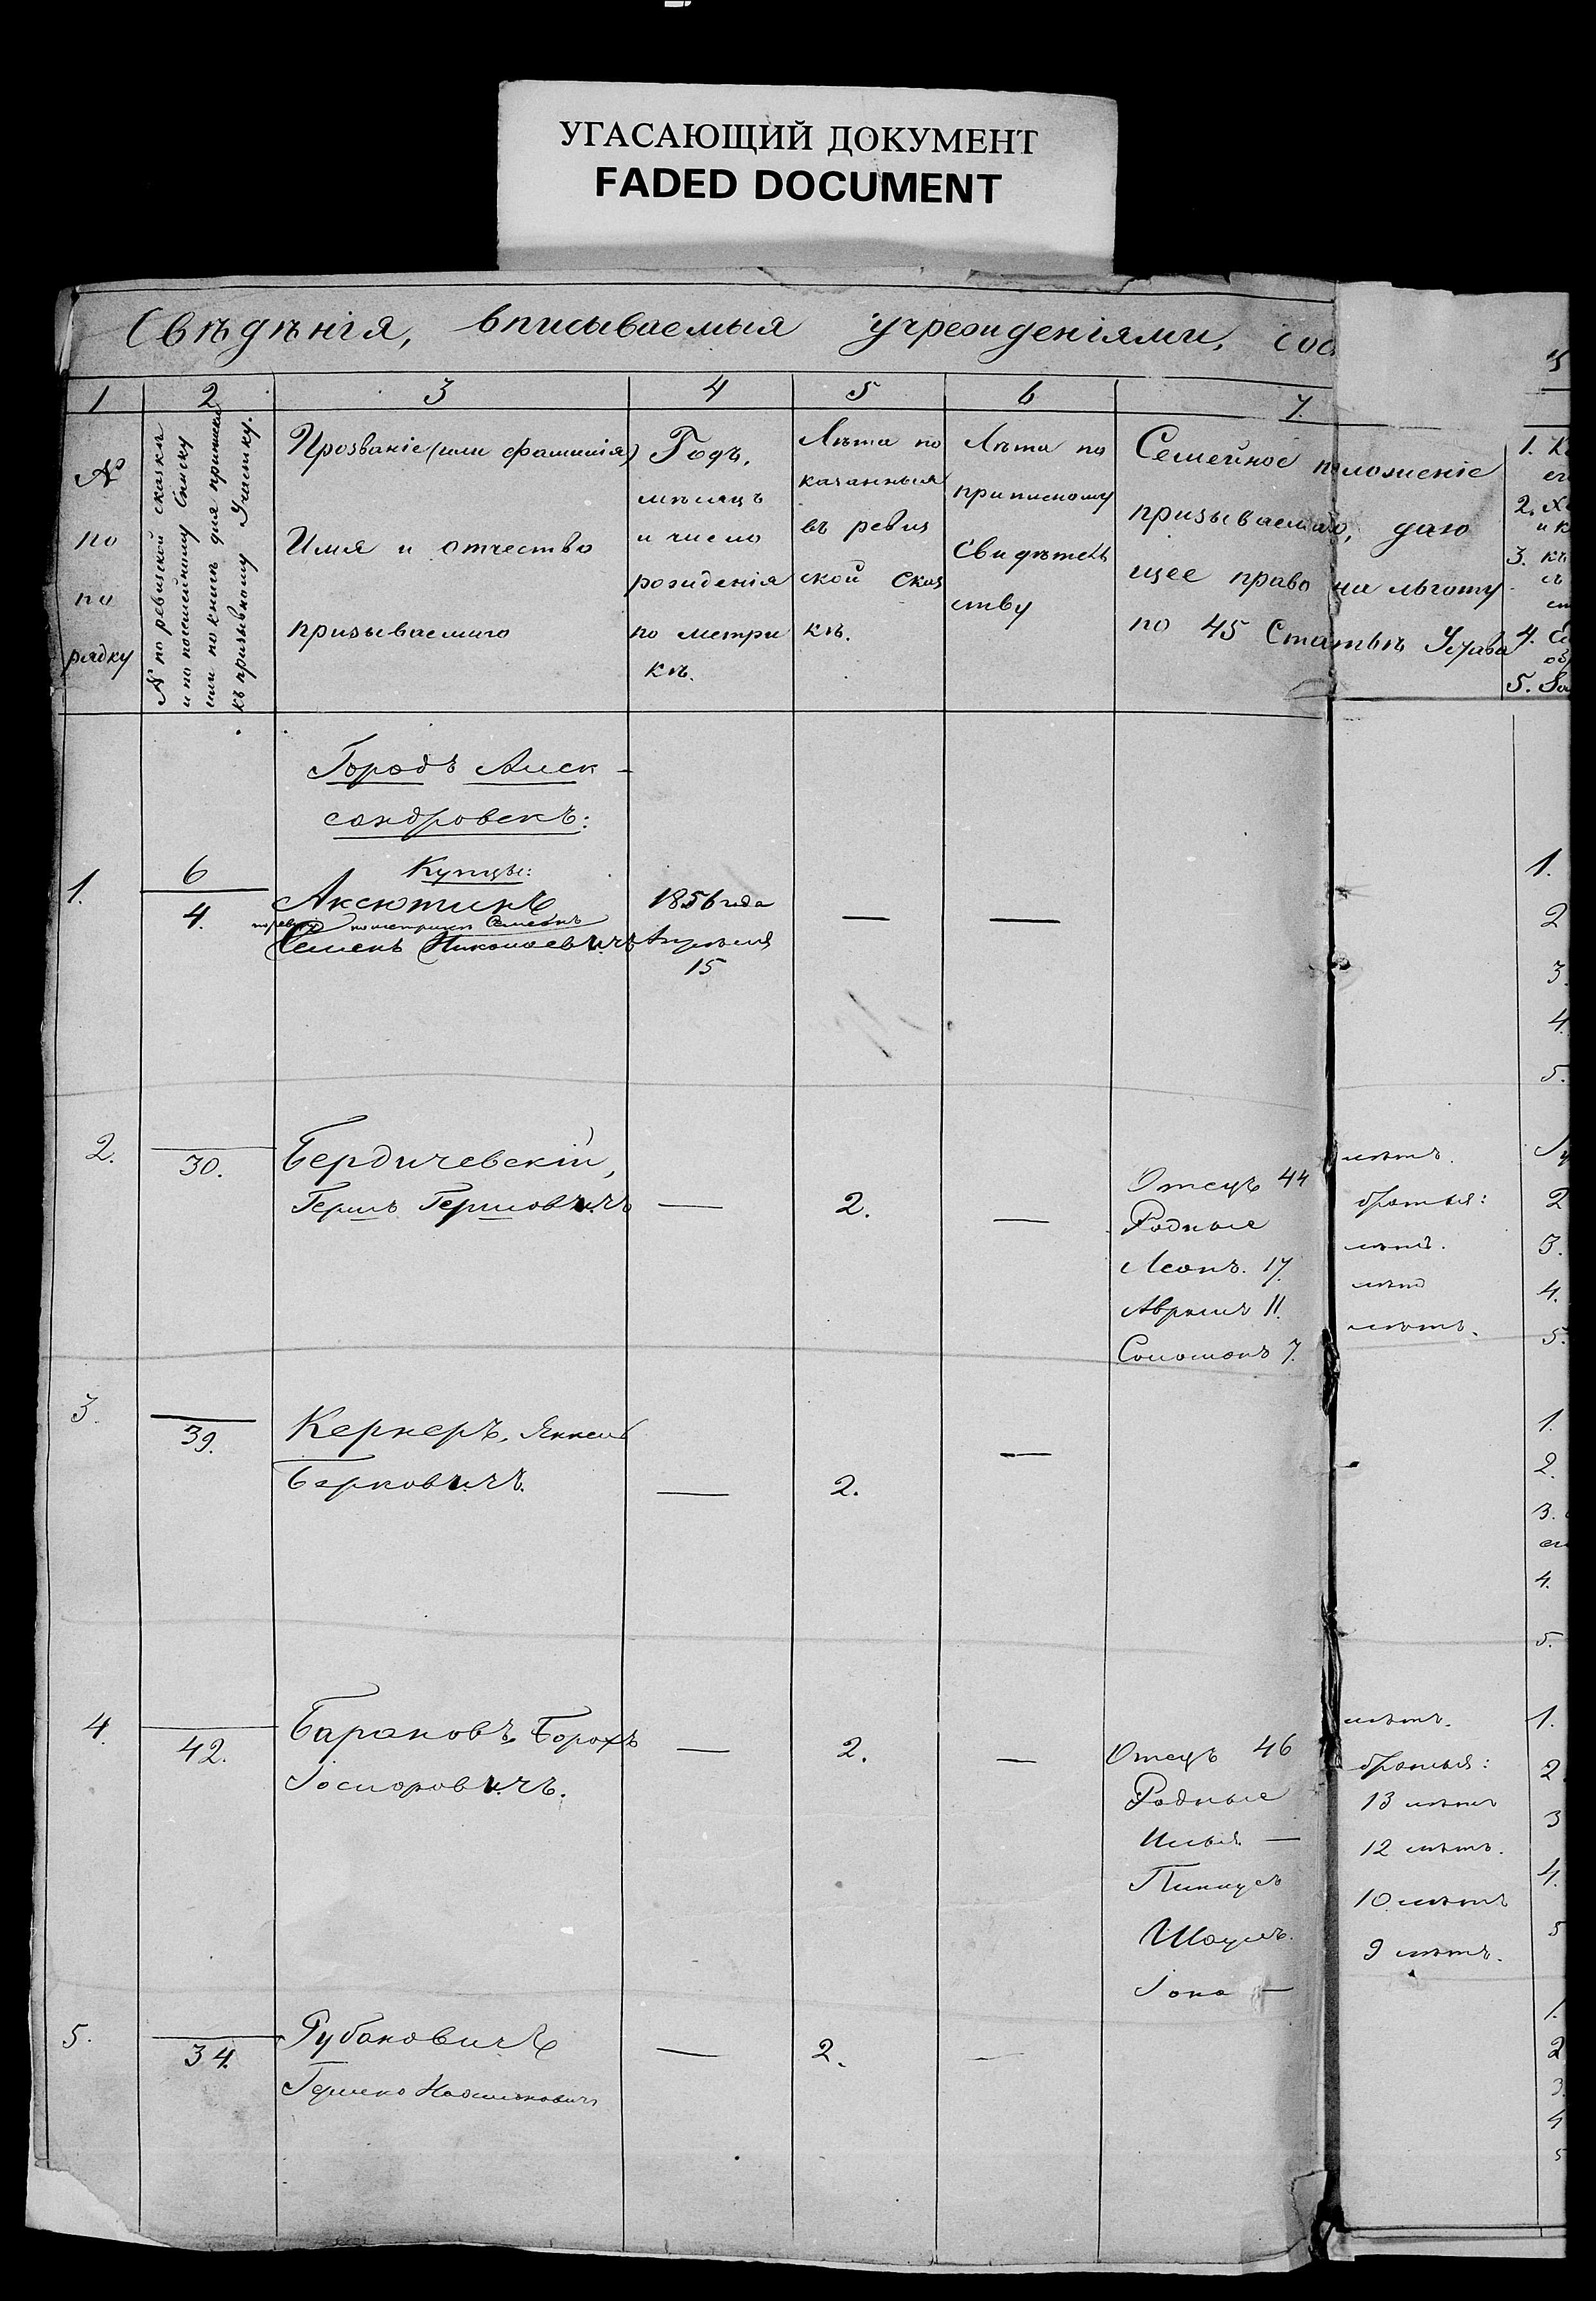 УГАСАЮЩИЙ ДОКУМЕНТ
FADED DOCUMENT
Свѣдѣнія, вписываемыя учрежденіями, сос
1 2 3 4 5 6 7.
№
по
по
рядку
№ по ревизской сказкѣ
и по посемейному списку
или по книгѣ для приписки
къ призывному Участку.
Прозваніе (или фамилія)
Имя и отчество
призываемаго
Годъ,
мѣсяцъ
и число
рожденія
по метри
кѣ.
Лѣта по
казанныя
въ ревиз
ской сказ
кѣ.
Лѣта по
приписному
свидѣтель
ству
Семейное положеніе
призываемаго, даю
щее право на льготу
по 45 Статьѣ Устава
1.
2.
3. къ
4.
5.
Городъ Алек-
сандровскъ:
Купцы:
1.
6
4.
Аксютинъ
по метрикѣ Семенъ
Семенъ Николаевичъ
1856 года
Апрѣля
15
— —
1.
2
3.
4.
5.
2.
30.
Бердичевскій,
Гершъ Гершовичъ
— 2. —
Отецъ 44 лѣтъ.
Родные братья:
Леонъ. 17. лѣтъ.
Абрамъ 11. лѣтъ
Соломонъ 7. лѣтъ.
2
3.
4.
5.
3.
39.
Кернеръ, Янкель
Берковичъ.
— 2. —
1.
2.
3.
4.
5.
4.
42.
Барановъ, Борохъ
Іосиоровичъ.
— 2. —
Отецъ 46 лѣтъ.
Родные братья:
Илья — 13 лѣтъ
Пинкусъ 12 лѣтъ.
Шаулъ. 10 лѣтъ
Іона — 9 лѣтъ.
1.
2.
3
4.
5
5.
34.
Рубановичъ
— 2. —
1.
2
3.
4
5